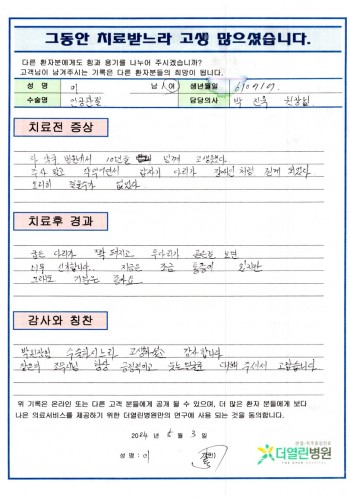 그동안 치료받느라 고생 많으셨습니다.
다른 환자분에게도 힘과 용기를 나누어 주시겠습니까?
고객님이 남겨주시는 기록은 다른 환자분들의 희망이 됩니다.
성 명 이 남 / 여 생년월일
수술명 인공관절 담당의사 박 원장님
치료전 증상
다 병원에서 10년을 넘게 고생했다
주사 맞고 갑자기 다리가 처럼
도저히 없었다
치료후 경과
굽은 다리가 쫙 펴지고 두다리가 보면
너무 신기합니다. 지금은 조금 통증이 있지만
그래도 기분은 좋아요
감사와 칭찬
박원장님 수술하시느라 고생하셨고 감사합니다
항상 웃는얼굴로 대해 주셔서 고맙습니다
위 기록은 온라인 또는 다른 고객 분들에게 공개 될 수 있으며, 더 많은 환자 분들에게 보다
나은 의료서비스를 제공하기 위한 더열린병원만의 연구에 사용 되는 것을 동의합니다.
2024 년 5 월 3 일
성 명 : 이 (인)
관절·척추중심진료
더열린병원
THE OPEN HOSPITAL